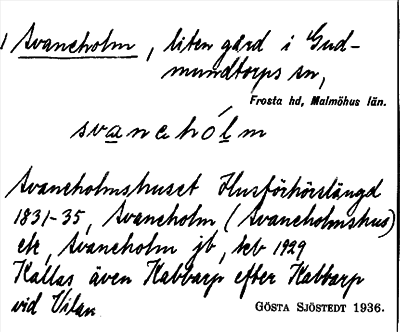 1 Svaneholm, liten gård i Gud-
mundtorps sn,
Frosta hd, Malmöhus län.
svanehólm
Svaneholmshuset Husförhörslängd
1831-35, Svaneholm (Svaneholmshus)
ek, Svaneholm jb, kb 1929
Kallas även Kabbarp efter Kabbarp
vid Vilan.
GÖSTA SJÖSTEDT 1936.